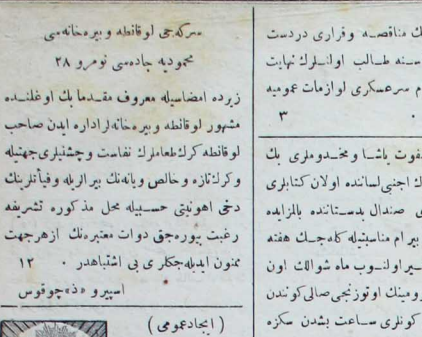 سركه‌جی لوقانطه و بیره‌خانه‌سی
محمودیه جاده‌سی نومرو ۲۸
زیرده امضاسیله معروف مقدما بك اوغلنده
مشهور لوقانطه و بیره‌خانه‌لر اداره ایدن صاحب
لوقانطه كرك طعاملرك نفاست و چشنیلری جهتیله
و كرك تازه و خالص ویانه‌نك بیرالریله و فیآتلرینك
دخی اهونیتی حسبیله محل مذكوره تشریفه
رغبت بیوره‌جق ذوات معتبره‌نك از هر جهت
ممنون ایدیله‌جكلری بی اشتباهدر ۰ ۱۲
اسپیرو «ذ» چوقوس
(ایجاد عمومی)
ك مناقصه و قراری دردست
سنه طالب اولنلرك نهایت
م سرعسكری لوازمات عمومیه
۳ ۰
صفوت پاشا و مخدوملری بك
ك اجنبی لساننده اولان كتابلری
ی صندال بدستاننده بالمزایده
بیرام مناسبتیله كله‌جك هفته
یر اولنوب ماه شوالك اون
رومینك اوتوزنجی صالی كونندن
كونلری ساعت بشدن سكزه